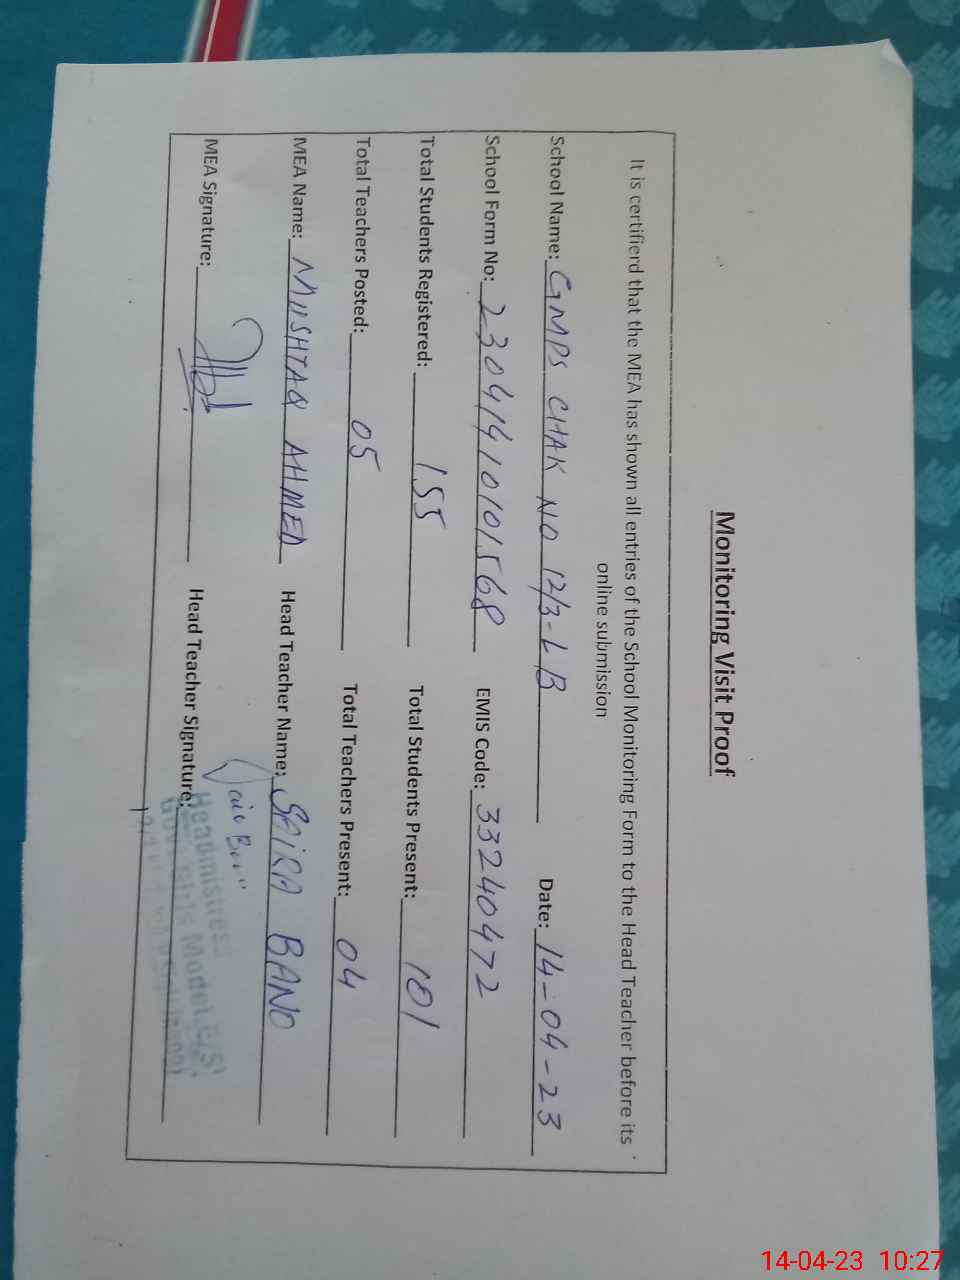 Monitoring Visit Proof
It is certifierd that the MEA has shown all entries of the School Monitoring Form to the Head Teacher before its
online submission
School Name: GMPS CHAK NO 12/3-LB Date: 14-04-23
School Form No: 23041410101568 EMIS Code: 33240472
Total Students Registered: 155 Total Students Present: 101
Total Teachers Posted: 05 Total Teachers Present: 04
MEA Name: MUSHTAQ AHMED Head Teacher Name: SAIRA BANO
MEA Signature: Head Teacher Signature:
Headmistress
Govt. Girls Model P/S
14-04-23 10:27